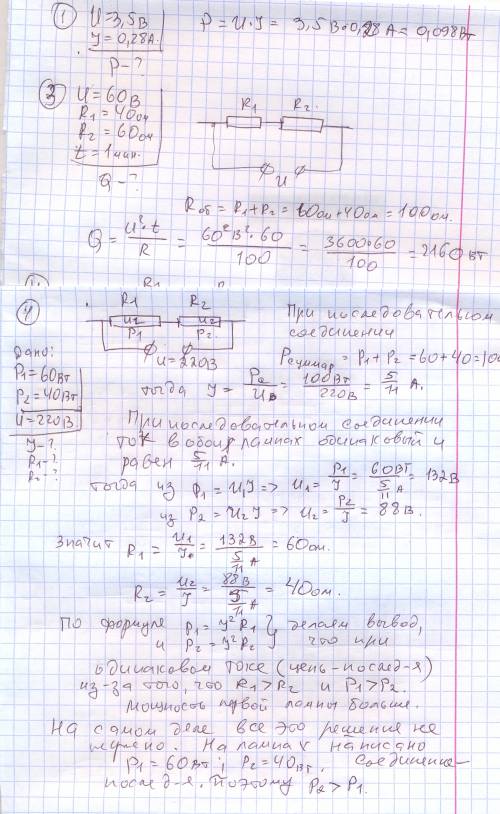 ① U = 3,5 В P = U·I = 3,5 В·0,28 А = 0,098 Вт
I = 0,28 А.
P - ?
③ U = 60 В
R₁ = 40 ом
R₂ = 60 ом
t = 1 мин.
Q - ?
R₁ R₂
U
Rоб = R₁ + R₂ = 60 ом + 40 ом = 100 ом.
Q = U²·t / R = 60² В²·60 / 100 = 3600·60 / 100 = 2160 Вт
④ R₁ R₂
U₁ U₂
P₁ P₂
U = 220 В
При последовательном
соединении
Дано:
P₁ = 60 Вт
P₂ = 40 Вт
U = 220 В
I - ?
R₁ - ?
R₂ - ?
Pсуммар = P₁ + P₂ = 60 + 40 = 100
тогда I = = 100 Вт / 220 В = 5/11 А.
При последовательной соединении
ток в обоих лампах одинаковый и
равен 5/11 А.
тогда из P₁ = U₁I => U₁ = P₁/I = 60 Вт / 5/11 А = 132 В
из P₂ = U₂I => U₂ = P₂/I = 88 В.
значит R₁ = U₁/I = 132 В / 5/11 А = 60 ом.
R₂ = U₂/I = 88 В / 5/11 А = 40 ом.
По формуле P₁ = I²R₁ } делаем вывод,
и P₂ = I²R₂ } что при
одинаковом токе (цепь - послед-я)
из-за того, что R₁ > R₂ и P₁ > P₂.
Мощность первой лампы больше.
На самом деле все это решение не
нужно. На лампах написано
P₁ = 60 Вт; P₂ = 40 Вт. Соединение -
послед-я. Поэтому P₂ > P₁.